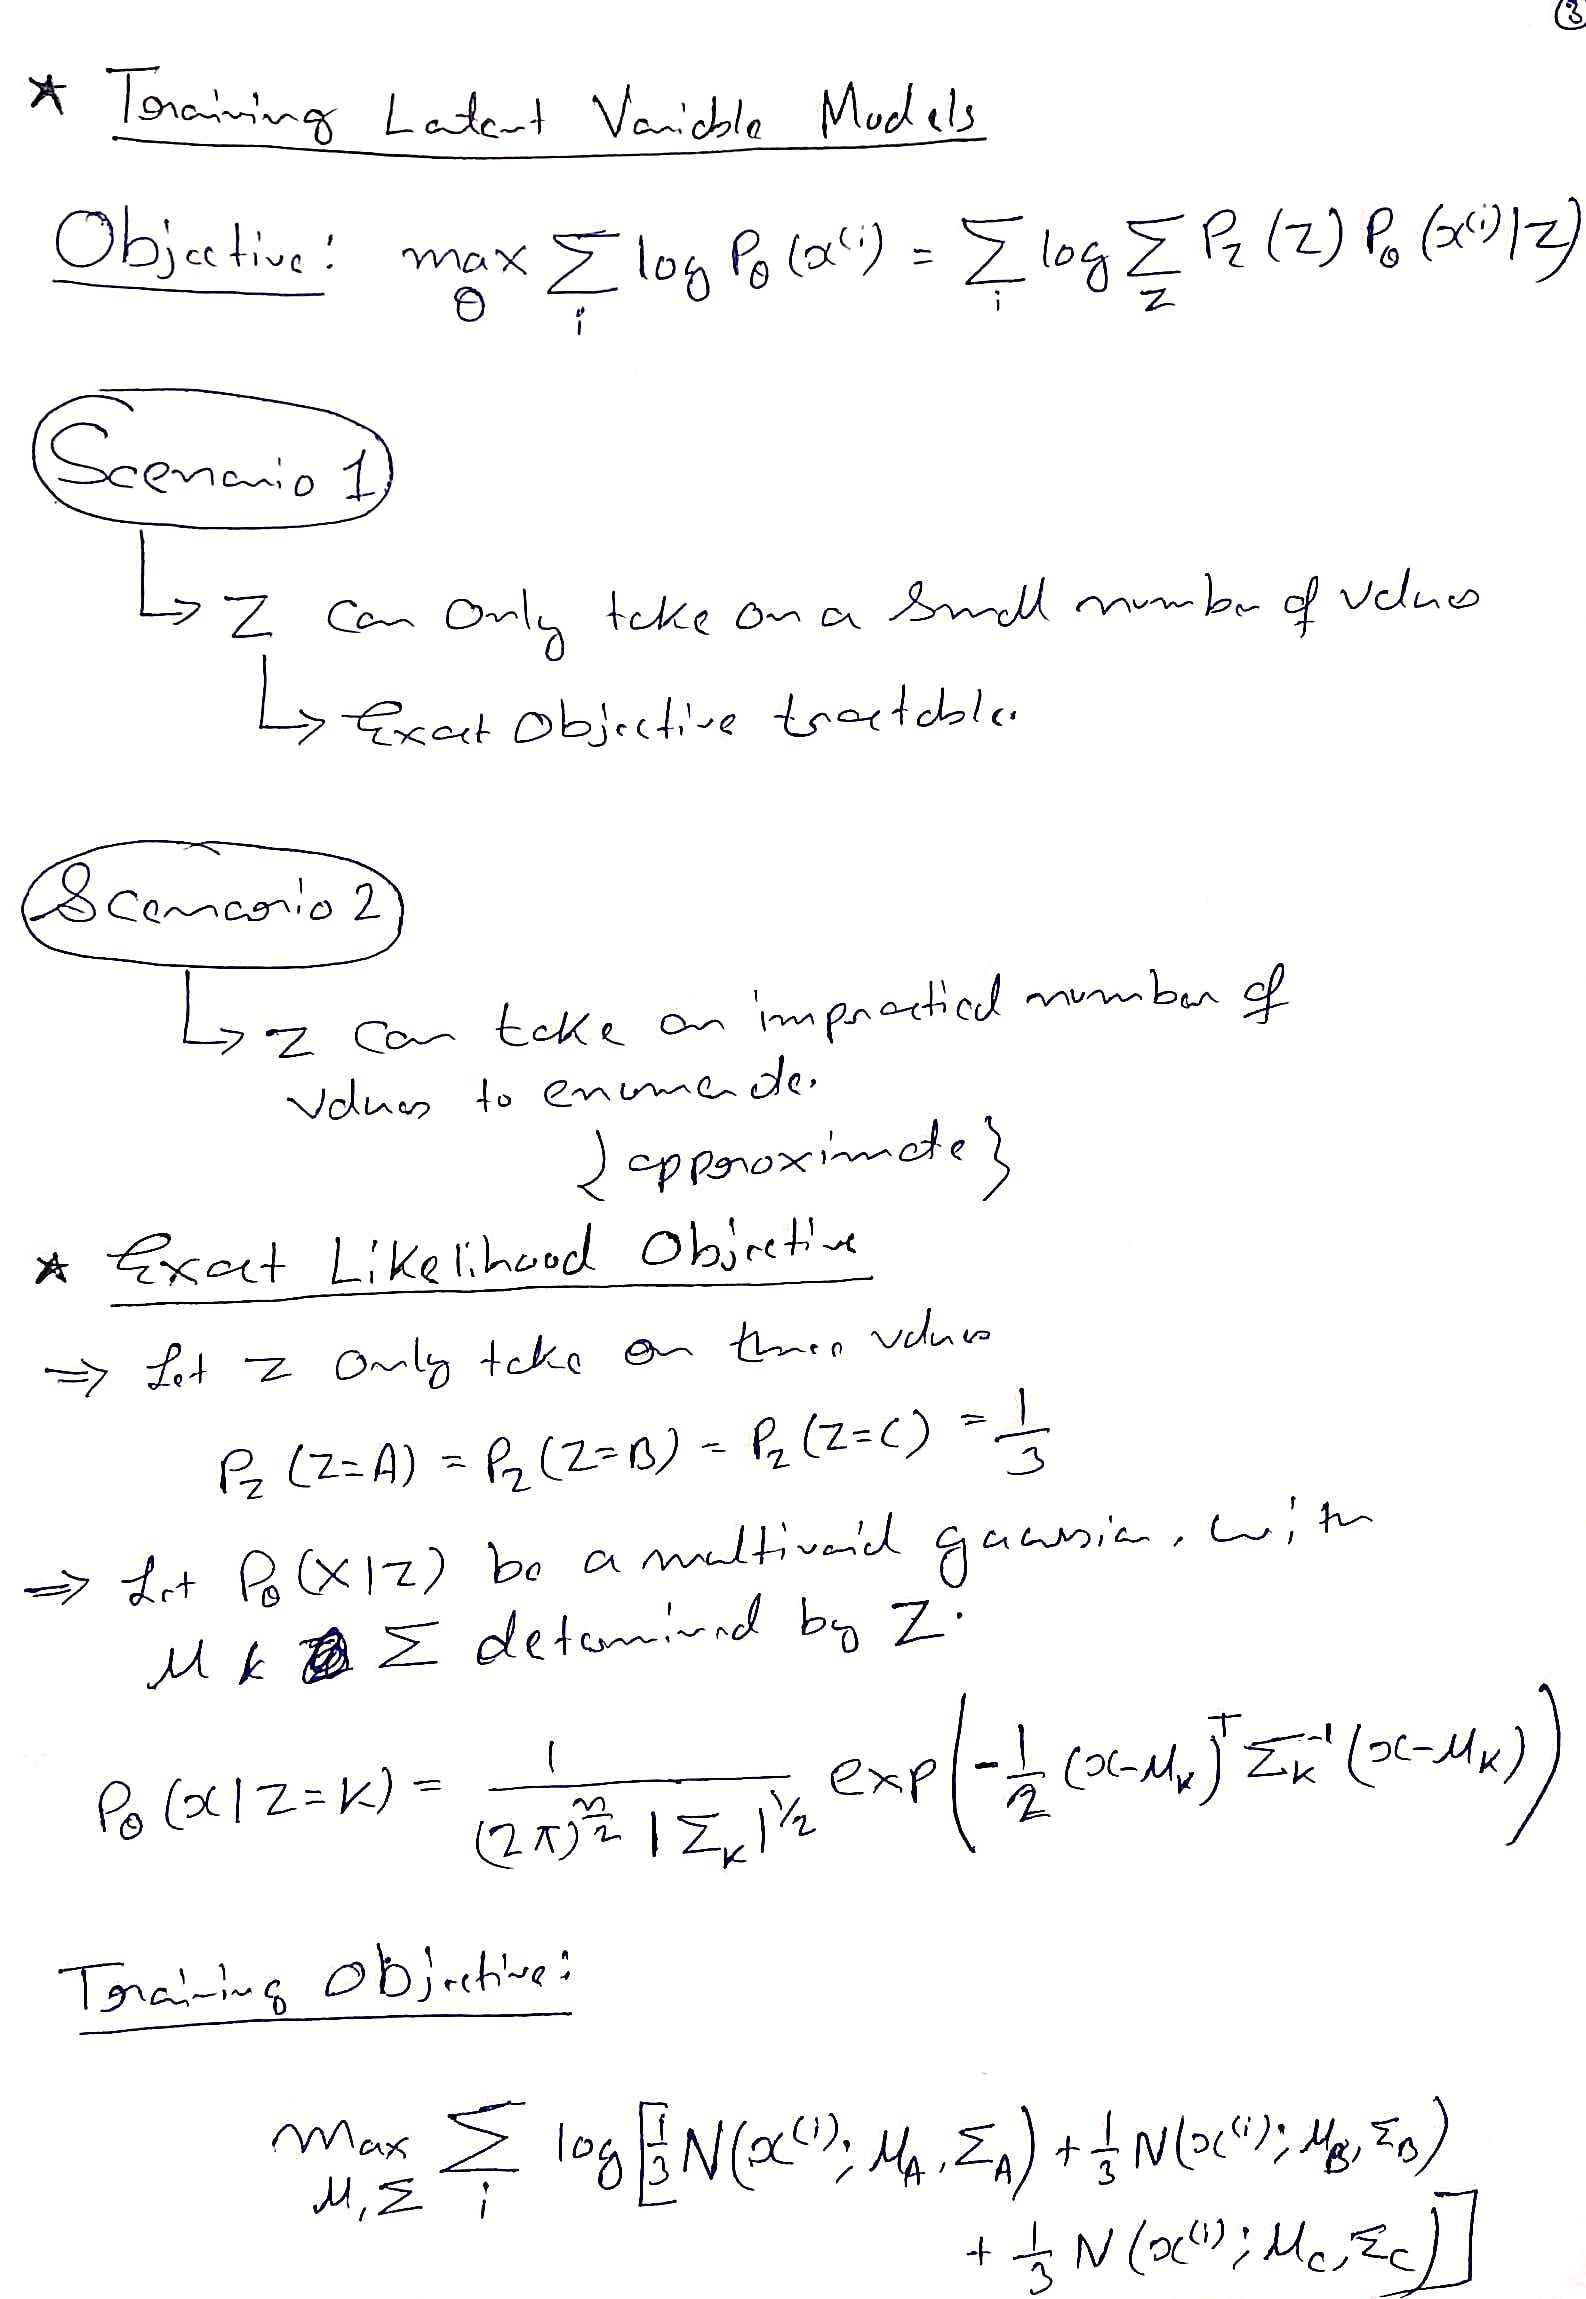 ③
★ Training Latent Variable Models
Objective: max_θ Σ_i log P_θ(x^(i)) = Σ_i log Σ_z P_z(z) P_θ(x^(i)|z)
Scenario 1
↳ Z can only take on a small number of values
↳ Exact Objective tractable.
Scenario 2
↳ z can take on impractical number of
values to enumerate.
{approximate}
★ Exact Likelihood Objective
⇒ Let z only take on three values
P_z(Z=A) = P_z(Z=B) = P_z(Z=C) = 1/3
⇒ Let P_θ(X|Z) be a gaussian, with
μ & Σ determined by Z.
P_θ(x|Z=K) = 1/((2π)^(n/2) |Σ_K|^(1/2)) exp(-1/2 (x-μ_K)^T Σ_K^(-1) (x-μ_K))
Training Objective:
max_{μ,Σ} Σ_i log[1/3 N(x^(i); μ_A, Σ_A) + 1/3 N(x^(i); μ_B, Σ_B)
+ 1/3 N(x^(i); μ_C, Σ_C)]